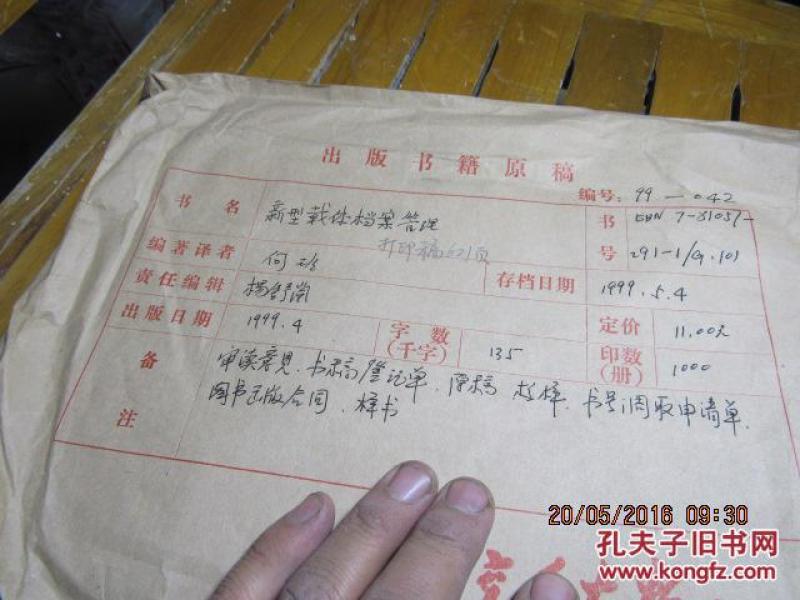 出版书籍原稿
编号: 99-042
书名 新型载体档案管理 书号 ISBN 7-81057-291-1/G.101
打印稿
编著译者 何
存档日期 1999.5.4
责任编辑 杨舒
出版日期 1999.4 字数(千字) 135 定价 11.00元
印数(册) 1000
备注 审读意见、书稿登记单、原稿 校样、书号调取申请单、
图书出版合同、样书
20/05/2016 09:30
孔夫子旧书网
www.kongfz.com